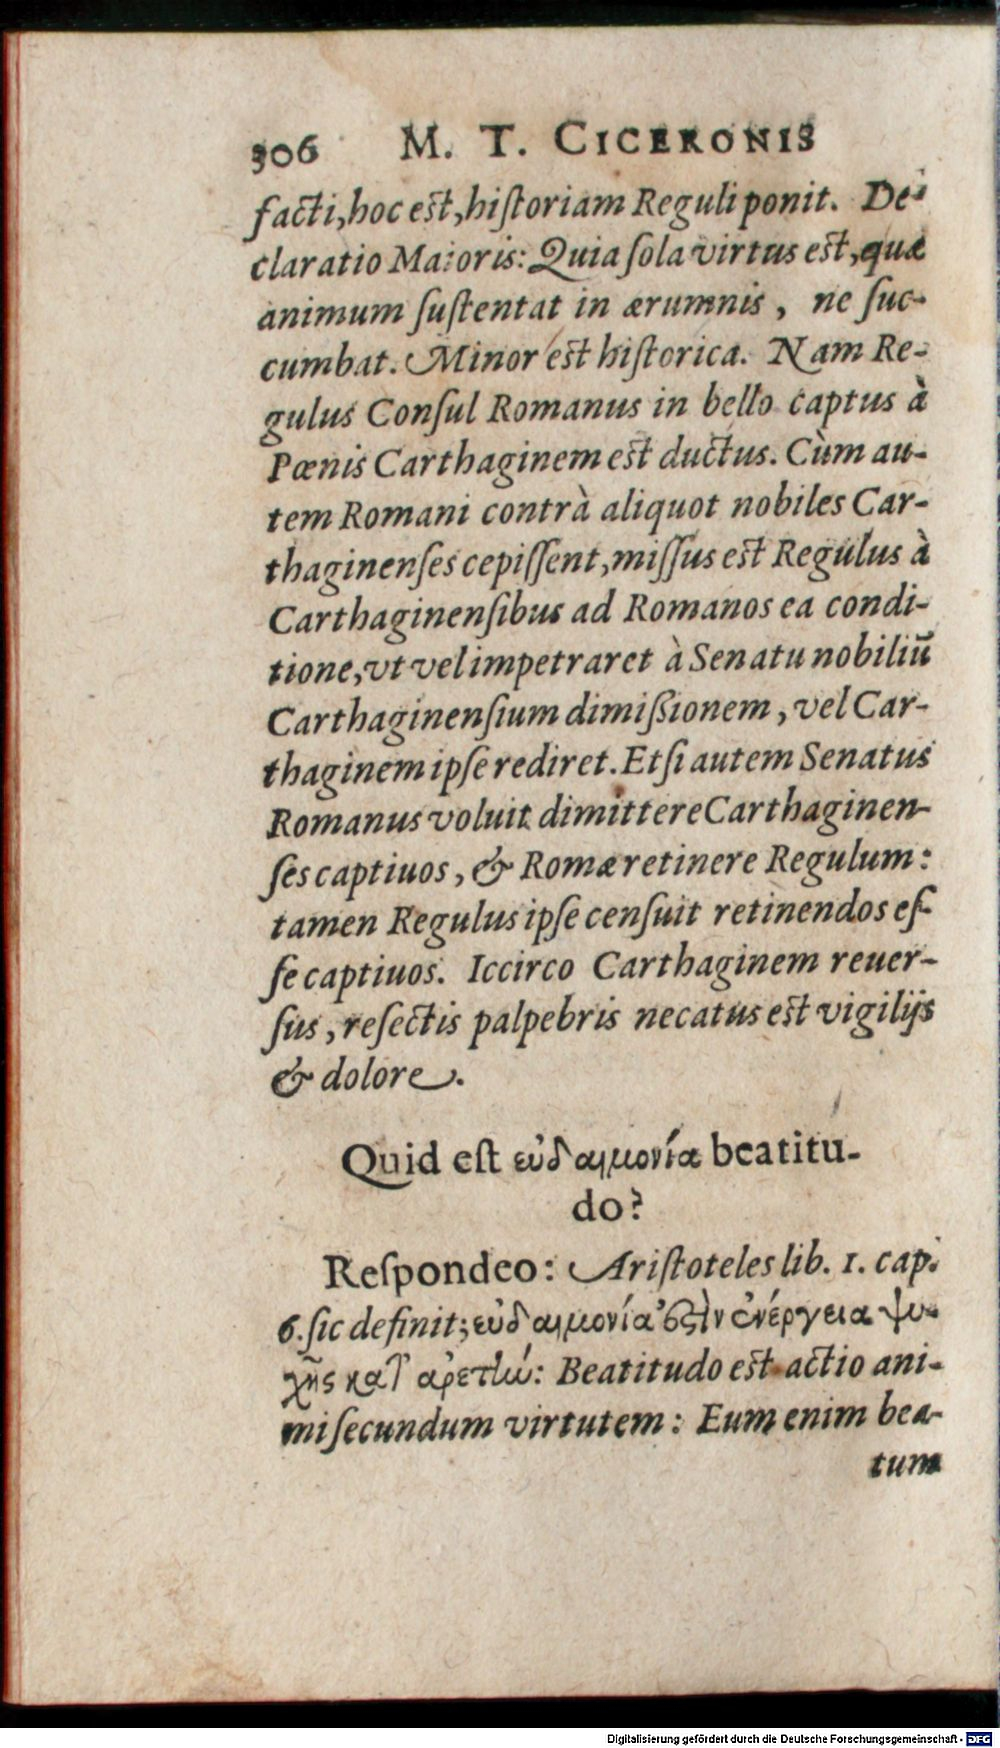 306 M. T. CICERONIS
facti, hoc est, hiſtoriam Reguli ponit. De-
claratio Maioris: Quia ſola virtus est, quæ
animum ſuſtentat in ærumnis, ne ſuc-
cumbat. Minor est hiſtorica. Nam Re-
gulus Conſul Romanus in bello captus à
Pœnis Carthaginem est ductus. Cùm au-
tem Romani contrà aliquot nobiles Car-
thaginenſes cepiſſent, miſſus est Regulus à
Carthaginenſibus ad Romanos ea condi-
tione, vt vel impetraret à Senatu nobiliū
Carthaginenſium dimißionem, vel Car-
thaginem ipſe rediret. Etſi autem Senatus
Romanus voluit dimittere Carthaginen-
ſes captiuos, & Romæ retinere Regulum:
tamen Regulus ipſe cenſuit retinendos eſ-
ſe captiuos. Iccirco Carthaginem reuer-
ſus, reſectis palpebris necatus est vigilijs
& dolore.
Quid eſt εὐδαιμονία beatitu-
do?
Reſpondeo: Ariſtoteles lib. 1. cap.
6. ſic definit; εὐδαιμονία ἐστὶν ἐνέργεια ψυ-
χῆς κατ' ἀρετὴν: Beatitudo est actio ani-
mi ſecundum virtutem: Eum enim bea-
tum
Digitalisierung gefördert durch die Deutsche Forschungsgemeinschaft - DFG